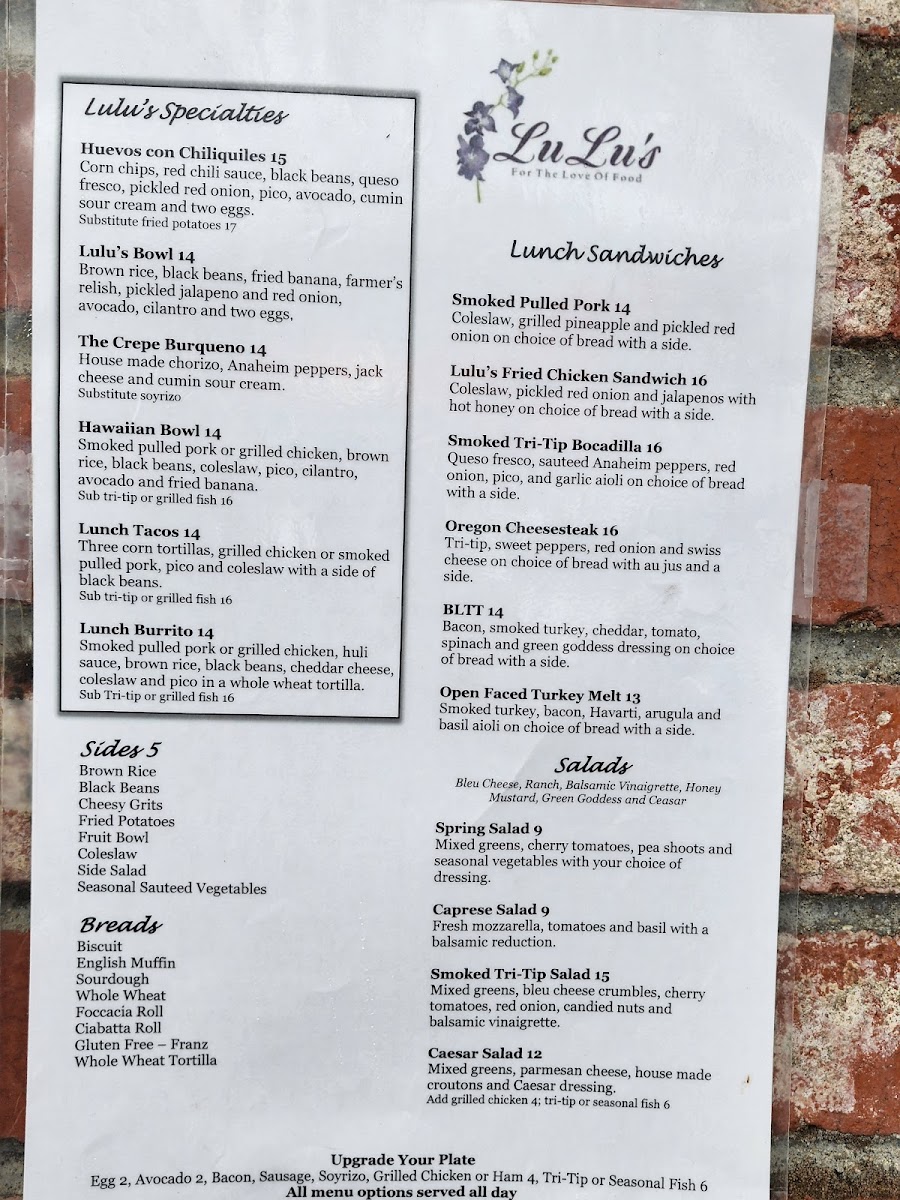 Lulu's Specialties
Huevos con Chiliquiles 15
Corn chips, red chili sauce, black beans, queso
fresco, pickled red onion, pico, avocado, cumin
sour cream and two eggs.
Substitute fried potatoes 17
Lulu's Bowl 14
Brown rice, black beans, fried banana, farmer's
relish, pickled jalapeno and red onion,
avocado, cilantro and two eggs,
The Crepe Burqueno 14
House made chorizo, Anaheim peppers, jack
cheese and cumin sour cream.
Substitute soyrizo
Hawaiian Bowl 14
Smoked pulled pork or grilled chicken, brown
rice, black beans, coleslaw, pico, cilantro,
avocado and fried banana.
Sub tri-tip or grilled fish 16
Lunch Tacos 14
Three corn tortillas, grilled chicken or smoked
pulled pork, pico and coleslaw with a side of
black beans.
Sub tri-tip or grilled fish 16
Lunch Burrito 14
Smoked pulled pork or grilled chicken, huli
sauce, brown rice, black beans, cheddar cheese,
coleslaw and pico in a whole wheat tortilla.
Sub Tri-tip or grilled fish 16
Sides 5
Brown Rice
Black Beans
Cheesy Grits
Fried Potatoes
Fruit Bowl
Coleslaw
Side Salad
Seasonal Sauteed Vegetables
Breads
Biscuit
English Muffin
Sourdough
Whole Wheat
Foccacia Roll
Ciabatta Roll
Gluten Free – Franz
Whole Wheat Tortilla
LuLu's
For The Love Of Food
Lunch Sandwiches
Smoked Pulled Pork 14
Coleslaw, grilled pineapple and pickled red
onion on choice of bread with a side.
Lulu's Fried Chicken Sandwich 16
Coleslaw, pickled red onion and jalapenos with
hot honey on choice of bread with a side.
Smoked Tri-Tip Bocadilla 16
Queso fresco, sauteed Anaheim peppers, red
onion, pico, and garlic aioli on choice of bread
with a side.
Oregon Cheesesteak 16
Tri-tip, sweet peppers, red onion and swiss
cheese on choice of bread with au jus and a
side.
BLTT 14
Bacon, smoked turkey, cheddar, tomato,
spinach and green goddess dressing on choice
of bread with a side.
Open Faced Turkey Melt 13
Smoked turkey, bacon, Havarti, arugula and
basil aioli on choice of bread with a side.
Salads
Bleu Cheese, Ranch, Balsamic Vinaigrette, Honey
Mustard, Green Goddess and Ceasar
Spring Salad 9
Mixed greens, cherry tomatoes, pea shoots and
seasonal vegetables with your choice of
dressing.
Caprese Salad 9
Fresh mozzarella, tomatoes and basil with a
balsamic reduction.
Smoked Tri-Tip Salad 15
Mixed greens, bleu cheese crumbles, cherry
tomatoes, red onion, candied nuts and
balsamic vinaigrette.
Caesar Salad 12
Mixed greens, parmesan cheese, house made
croutons and Caesar dressing.
Add grilled chicken 4; tri-tip or seasonal fish 6
Upgrade Your Plate
Egg 2, Avocado 2, Bacon, Sausage, Soyrizo, Grilled Chicken or Ham 4, Tri-Tip or Seasonal Fish 6
All menu options served all day